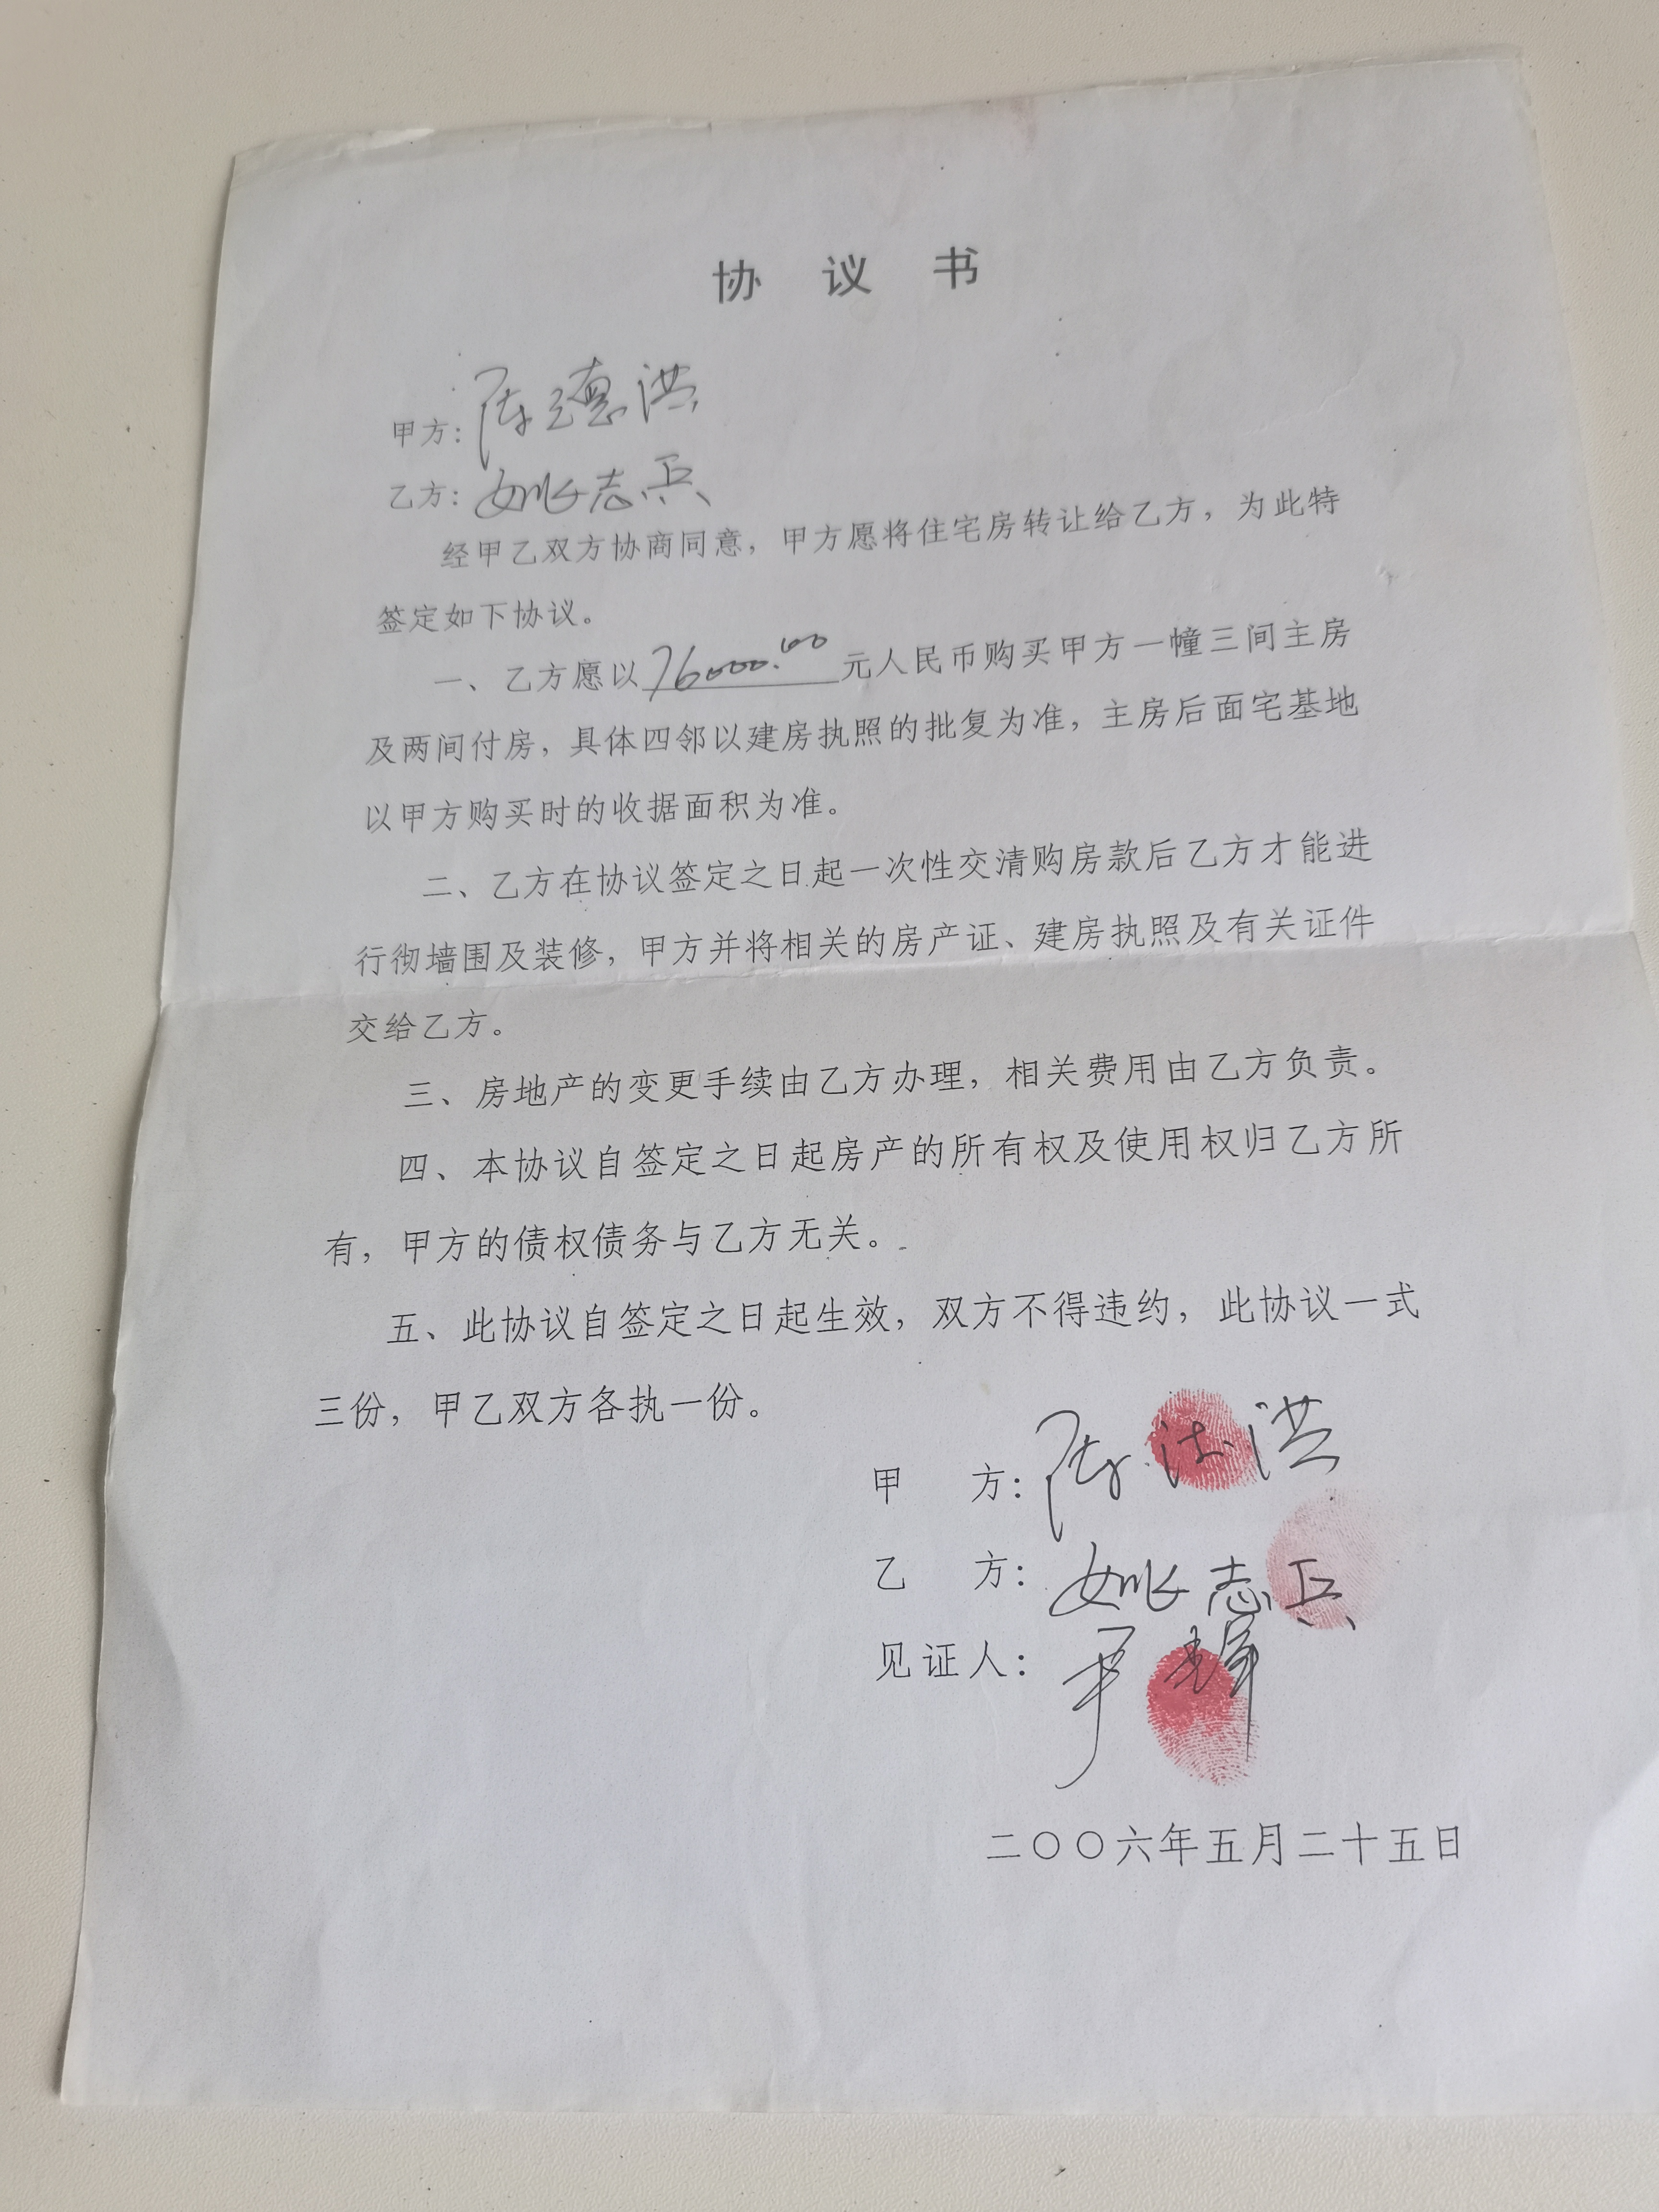 协 议 书
甲方：陈德洪
乙方：姚志兵
经甲乙双方协商同意，甲方愿将住宅房转让给乙方，为此特
签定如下协议。
一、乙方愿以76000.00元人民币购买甲方一幢三间主房
及两间付房，具体四邻以建房执照的批复为准，主房后面宅基地
以甲方购买时的收据面积为准。
二、乙方在协议签定之日起一次性交清购房款后乙方才能进
行彻墙围及装修，甲方并将相关的房产证、建房执照及有关证件
交给乙方。
三、房地产的变更手续由乙方办理，相关费用由乙方负责。
四、本协议自签定之日起房产的所有权及使用权归乙方所
有，甲方的债权债务与乙方无关。
五、此协议自签定之日起生效，双方不得违约，此协议一式
三份，甲乙双方各执一份。
甲 方：陈德洪
乙 方：姚志兵
见证人：
二〇〇六年五月二十五日